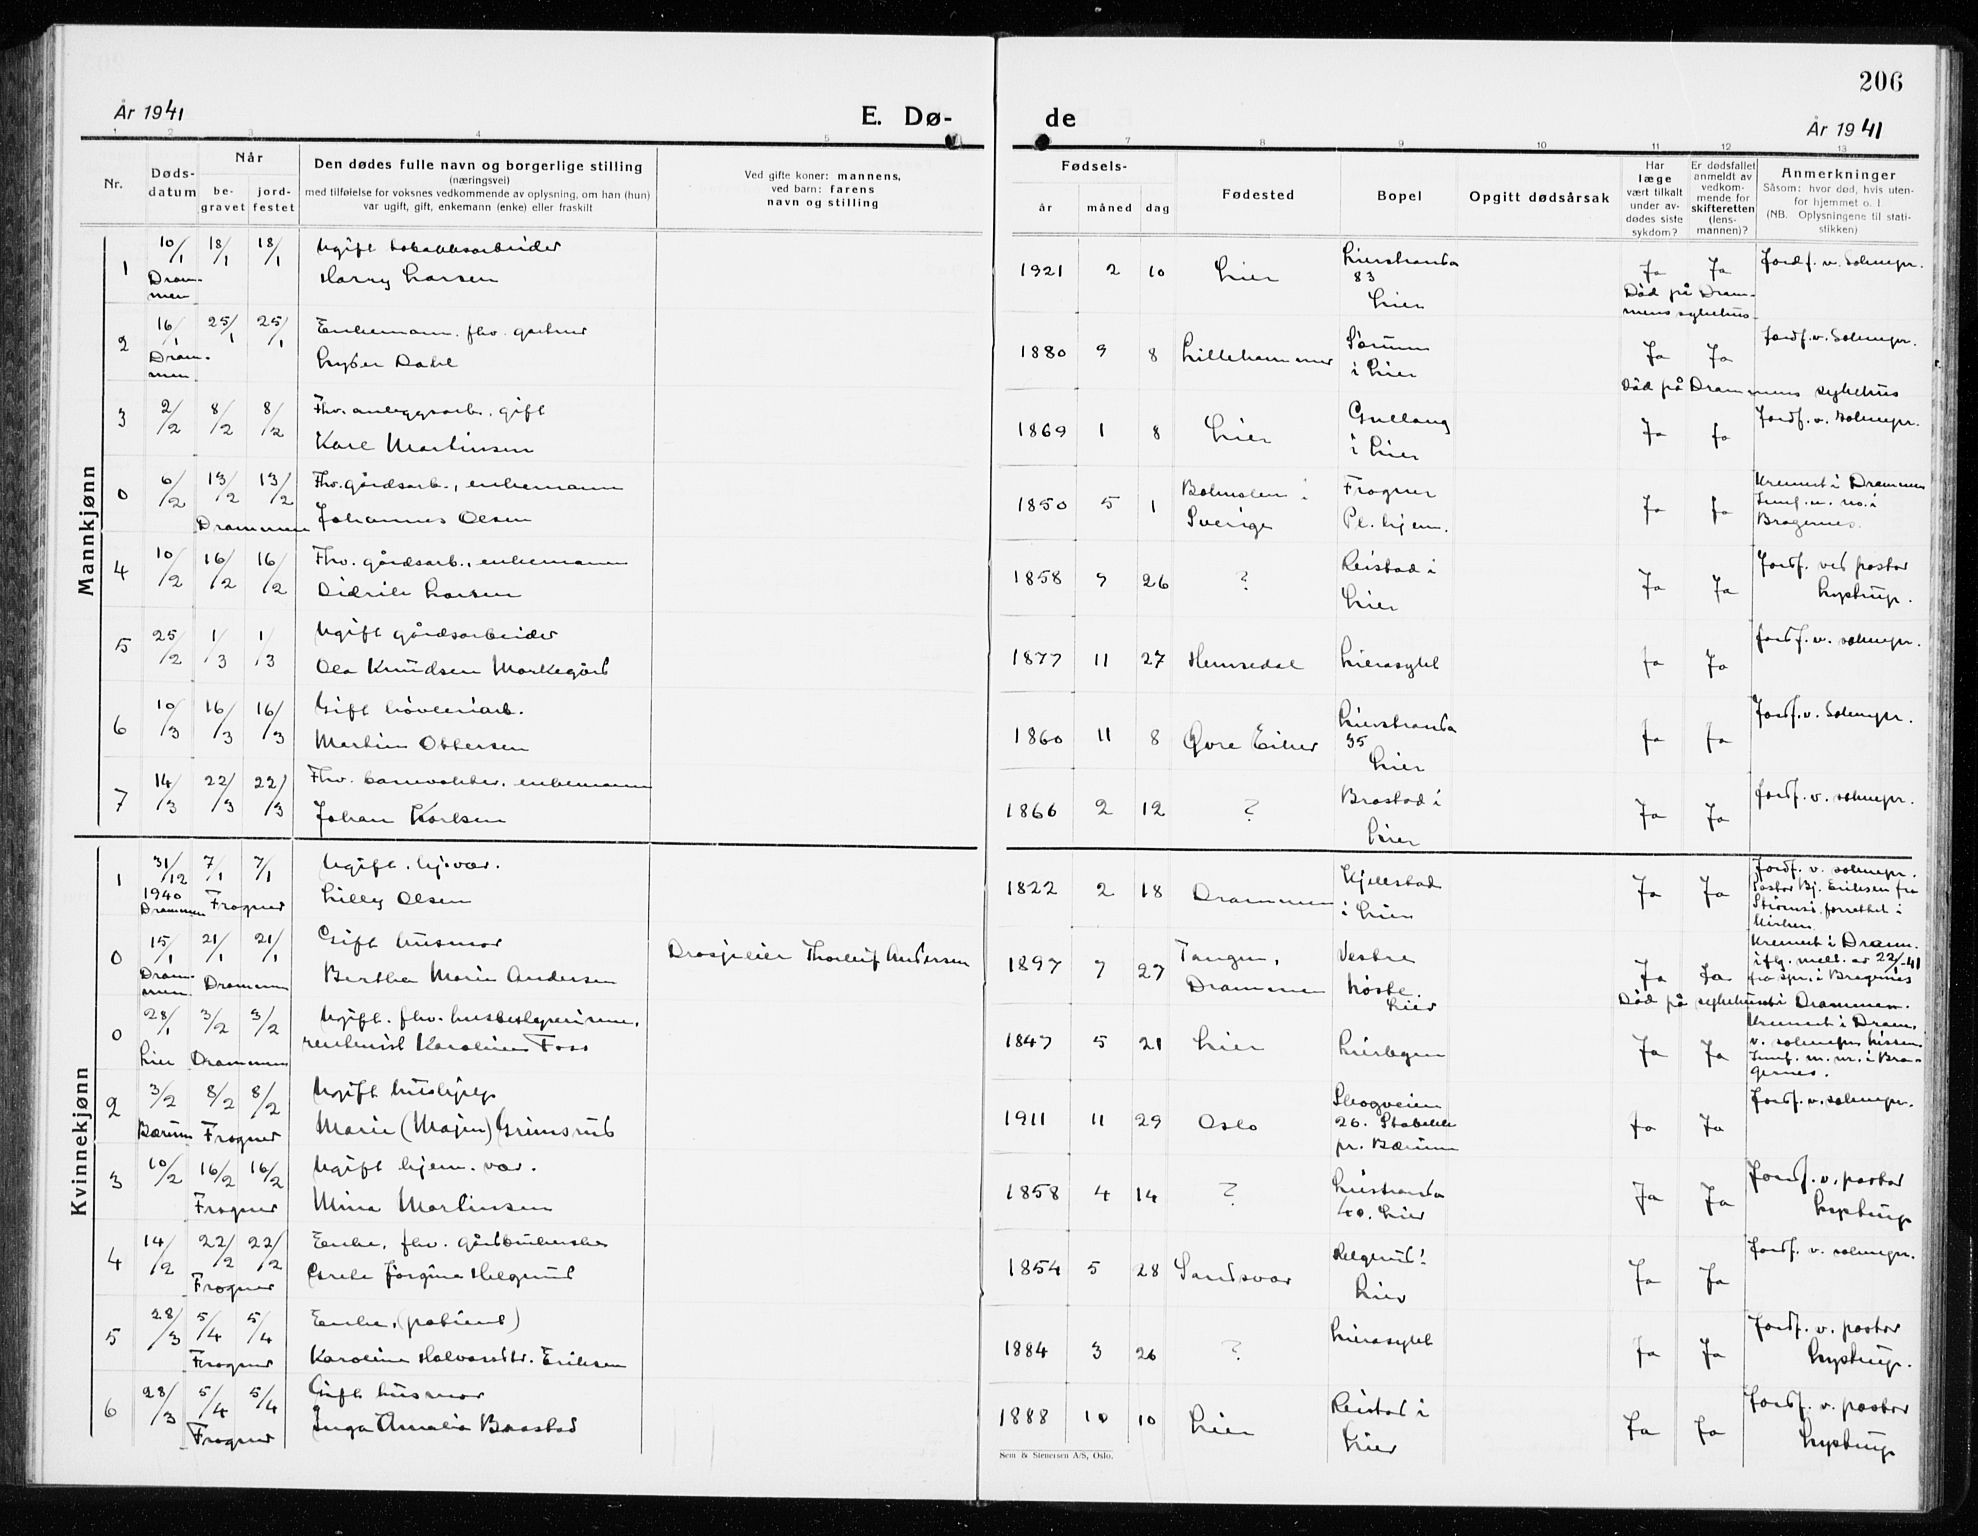 206
År 1941
E. Dø-
de
År 1941
1 2 3 4 5 7 8 9 10 11 12 13
Nr.
Døds-
datum
Når
be-
gravet
jord-
festet
Den dødes fulle navn og borgerlige stilling
(næringsvei)
med tilføielse for voksnes vedkommende av oplysning, om han (hun)
var ugift, gift, enkemann (enke) eller fraskilt
Ved gifte koner: mannens,
ved barn: farens
navn og stilling
Fødsels-
år måned dag
Fødested
Bopel
Opgitt dødsårsak
Har
læge
vært tilkalt
under av-
dødes siste
sykdom?
Er dødsfallet
anmeldt av
vedkom-
mende for
skifteretten
(lens-
mannen)?
Anmerkninger
Såsom: hvor død, hvis uten-
for hjemmet o. l.
(NB. Oplysningene til stati-
stikken)
Mannkjønn
1 10/1 18/1 18/1 Ugift tobakksarbeider
Drammen Harry Larsen
1921 2 10 Lier Lierstranda
83
Lier
Ja Ja Jordf. v. soknepr.
Død på Dram-
mens sykehus
2 16/1 25/1 25/1 Enkemann. fhv. gartner
Drammen Lyder Dahl
1880 9 8 Lillehammer Sørum
i Lier
Ja Ja Jordf. v. Soknepr.
Død på Drammens sykehus
3 2/2 8/2 8/2 Fhv. anleggsarb. gift
Karl Martinsen
1869 1 8 Lier Gullaug
i Lier
Ja Ja Jordf. v. Soknepr.
0 6/2 13/2 13/2 Fhv. gårdsarb., enkemann
Drammen Johannes Olsen
1850 5 1
Sverige
Frogner
Pl. hjem.
Ja Ja Kremert i Drammen
Bragernes.
4 10/2 16/2 16/2 Fhv. gårdsarb., enkemann
Didrik Larsen
1858 9 26 ? Reistad i
Lier
Ja Ja Jordf. ved pastor
Lystrup.
5 25/2 1/3 1/3 Ugift gårdsarbeider
Ola Knudsen Markegård
1877 11 27 Hemsedal Lierasylet
Ja Ja Jordf. v. soknepr.
6 10/3 16/3 16/3 Gift høvleriarb.
Martin Ottersen
1860 11 8 Øvre Eiker Lierstranda
35
Lier
Ja Ja Jordf. v. Soknepr.
7 14/3 22/3 22/3 Fhv. banevokter, enkemann
Johan Karlsen
1866 2 12 ? Brastad i
Lier
Ja Ja Jordf. v. soknepr.
Kvinnekjønn
1 31/12 7/1 7/1 Ugift. hj.vær.
1940
Drammen Frogner Lilly Olsen
1822 2 18 Drammen Kjellstad
i Lier
Ja Ja Jordf. v. soknepr.
Pastor Bj. Eriksen fra
Strømsø forrettet i
kirken
0 15/1 21/1 21/1 Gift husmor
Drammen Drammen Bertha Marie Andersen
Drosjeeier Thorleif Andersen
1897 7 27 Tangen,
Drammen
Vestre
Høste
Lier
Ja Ja Kremert i Dram.
iflg. meld. av 22/1-41
fra spr. i Bragernes
Død på sykehuset i Drammen.
0 28/1 3/2 3/2 Ugift. fhv. husbestyrerinne,
Lier Drammen rentenist Karoline Foss
1847 5 21 Lier Lierbyen
Ja Ja Kremert i Dram.
v. soknepr.
Jmf. m. nr. i Bra-
gernes.
2 3/2 8/2 8/2 Ugift hushjelp
Bærum Frogner Marie (Majen) Grimsrud
1911 11 29 Oslo Skogveien
26. Stabekk
pr. Bærum
Ja Ja Jordf. v. soknepr.
3 10/2 16/2 16/2 Ugift hjem. vær.
Frogner Mina Martinsen
1858 4 14 ? Lierstranda
40. Lier
Ja Ja Jordf. v. pastor
Lystrup
4 14/2 22/2 22/2 Enke, fhv. gårdbrukerske
Frogner Grete Jørgine Helgerud
1854 5 28 Sandsvær Helgerud i
Lier
Ja Ja Jordf. v. soknepr.
5 28/3 5/4 5/4 Enke, (patient)
Frogner Karoline Halvorsdtr. Eriksen
1884 3 26 ? Lierasylet
Ja Ja Jordf. v. pastor
Lystrup.
6 28/3 5/4 5/4 Gift husmor
Frogner Inga Amalia Brastad
1888 10 10 Lier Reistad i
Lier
Ja Ja Jordf. v. pastor
Lystrup
Sem & Stenersen A/S, Oslo.